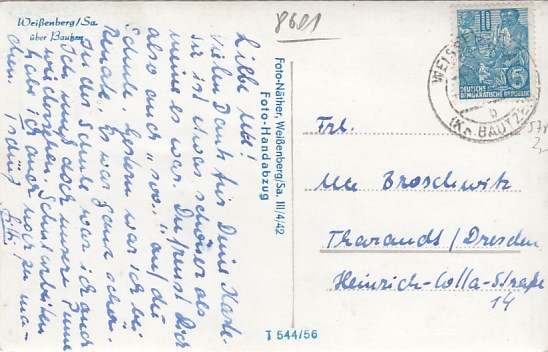 Weißenberg/Sa.
über Bautzen
8601
Liebe Ute!
Vielen Dank für Deine Karte.
Sie ist etwas schöner als
meine es war. Du freust Dich
also auch "so" auf die
Schule. Gestern war ich bei
Renate. Es war ganz schön.
In der Schule war ich auch
Ich muß doch unsere Fumu
wiedersehen. Schularbeiten
habe ich auch noch zu ma-
chen.
Foto-Näther, Weißenberg/Sa. III/4/42
Foto-Handabzug
T 544/56
10
5
DEUTSCHE
DEMOKRATISCHE REPUBLIK
WEISSE
b
(Kr. BAUTZ
Frl.
Ute Broschwitz
Tharandt/Dresden
Heinrich-Cotta-Straße
14